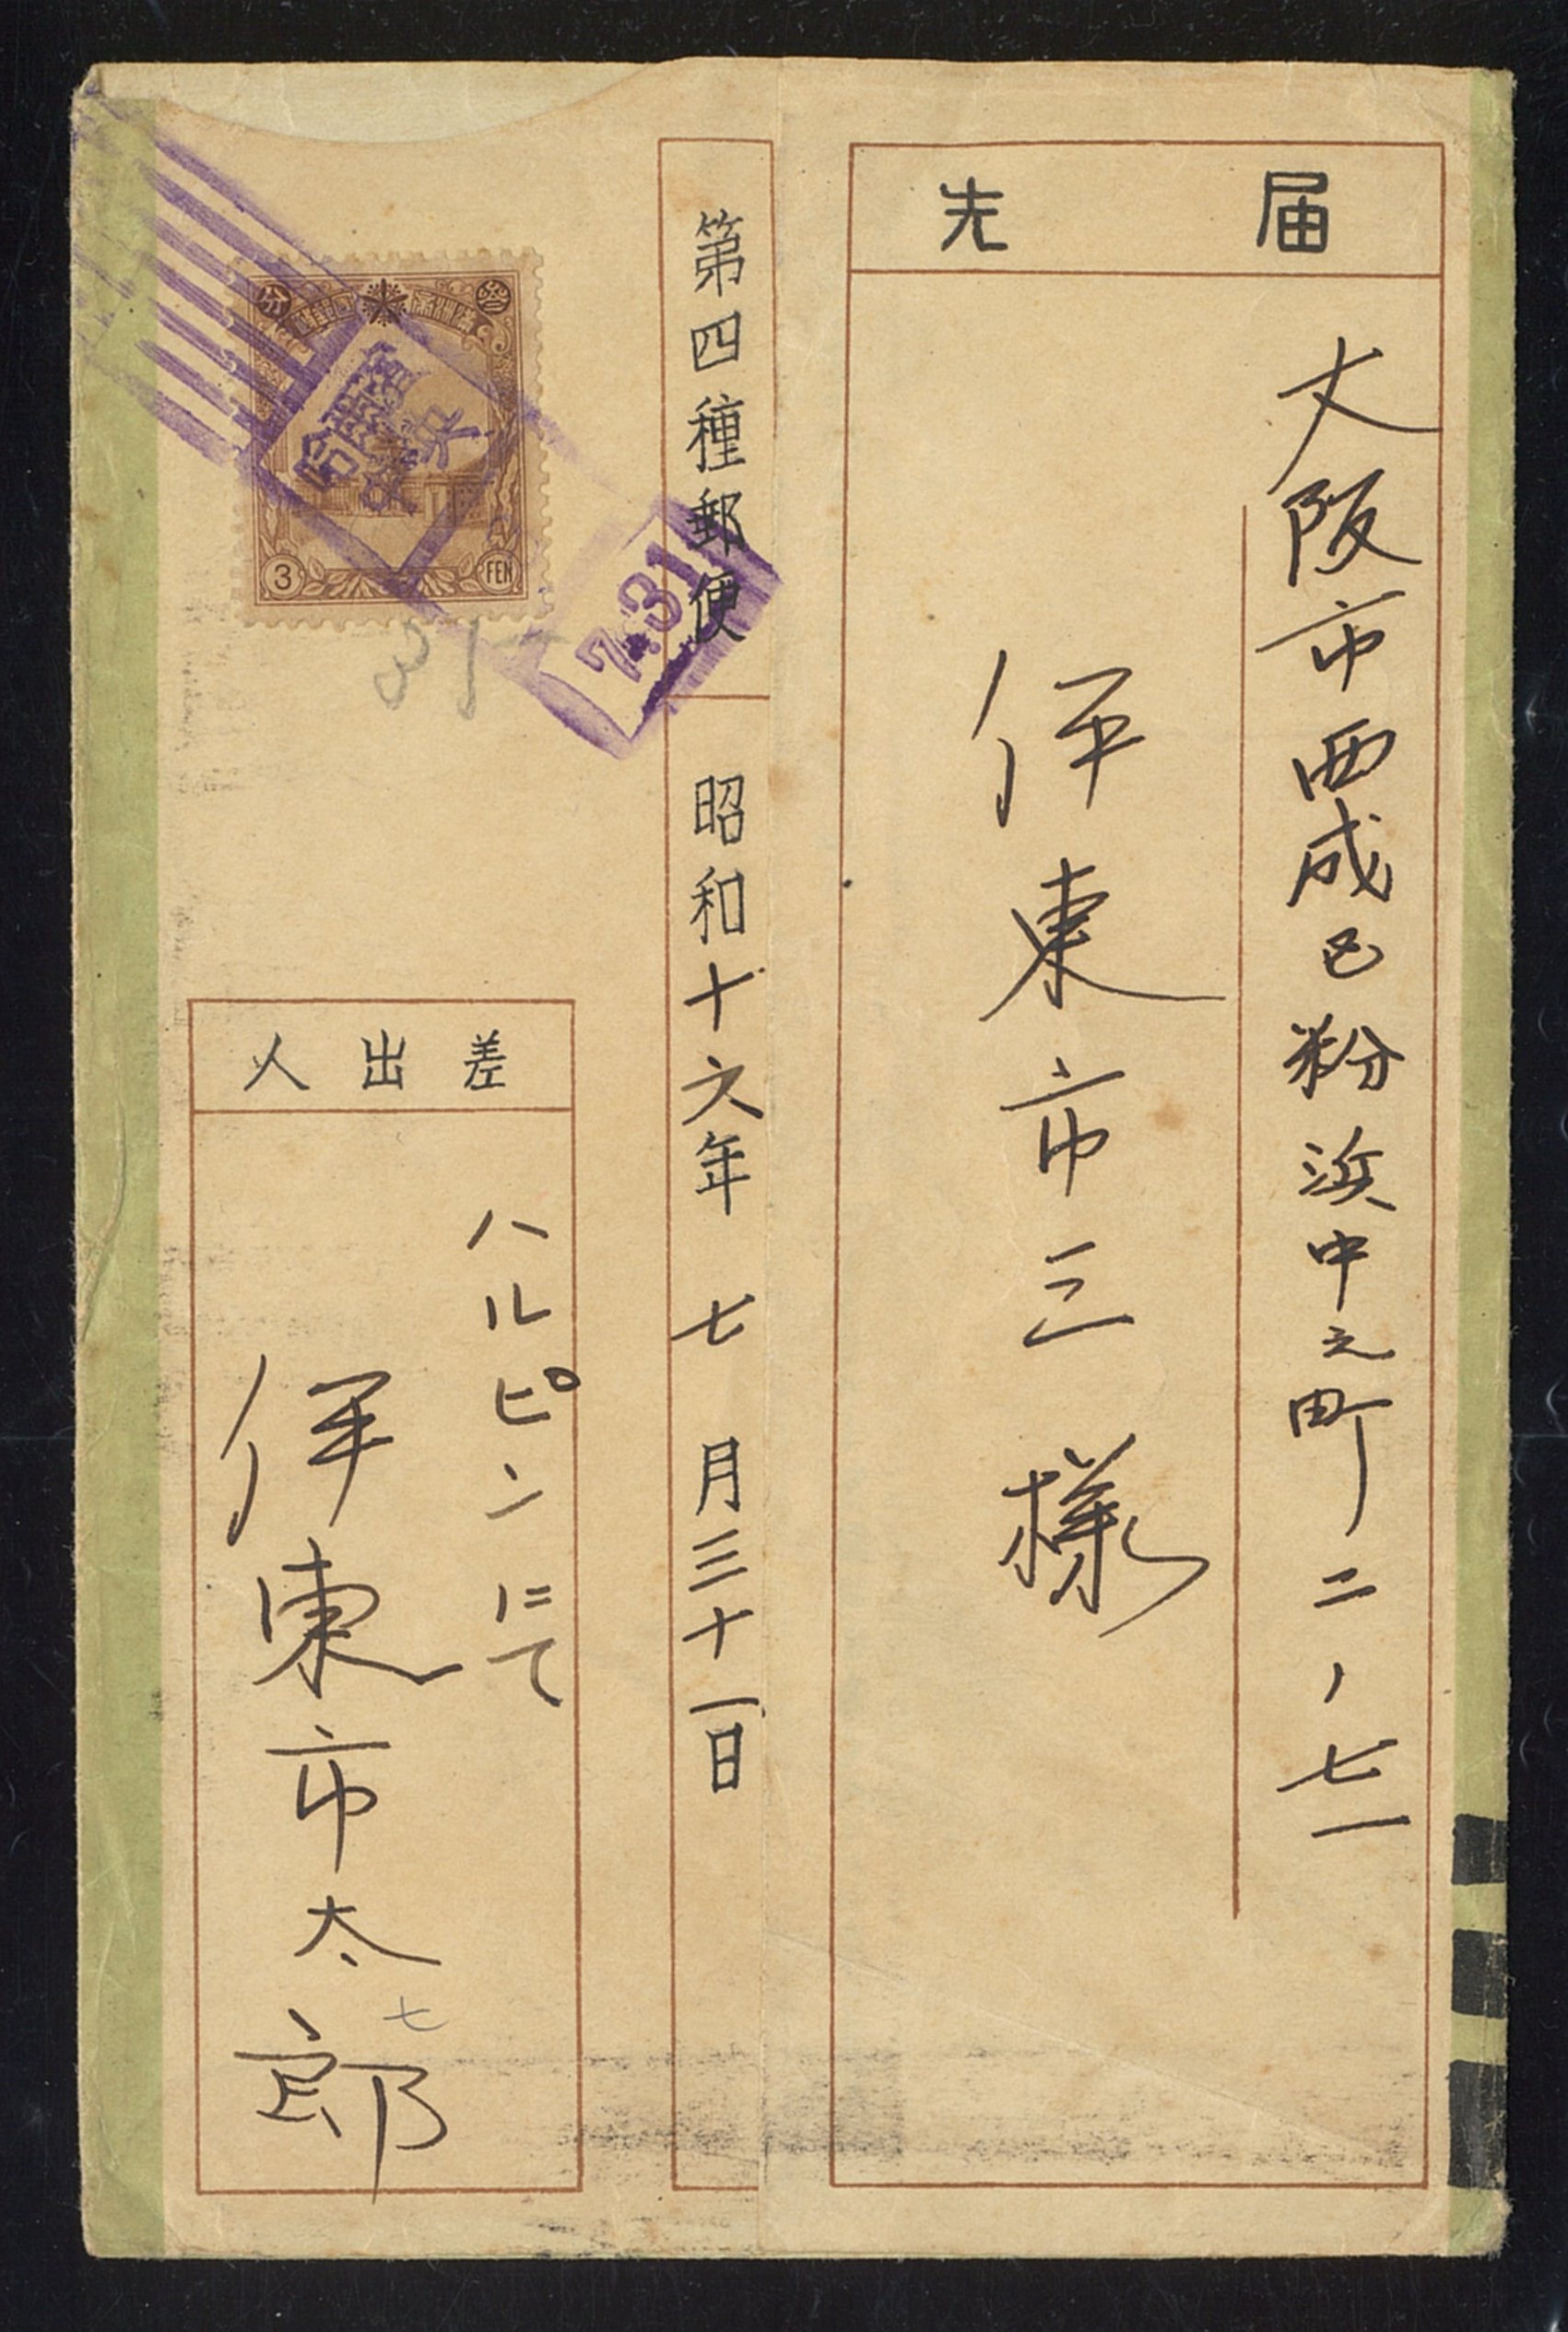 届先
大阪市西成区粉浜中之町二ノ七一
伊東市三様
第四種郵便
昭和十六年七月三十一日
差出人
ハルピンにて
伊東市太郎
七
参
分
3
FEN
哈爾濱
中央
7.31